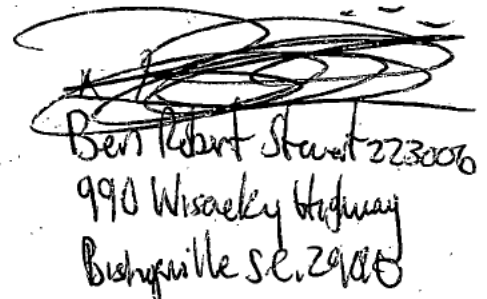 Ben Robert Stewart 223006
990 Wisacky Highway
Bishopville S.C. 29010